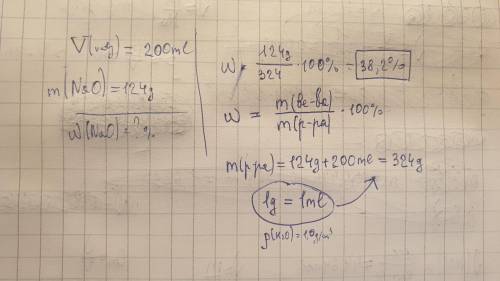 V(воды) = 200ml
m(Na₂O) = 124g
ω(Na₂O) = ? %
ω = 124g / 324 · 100% = 38,2%
ω = m(ве-ва) / m(р-ра) · 100%
m(р-ра) = 124g + 200ml = 324g
1g = 1ml
ρ(H₂O) =